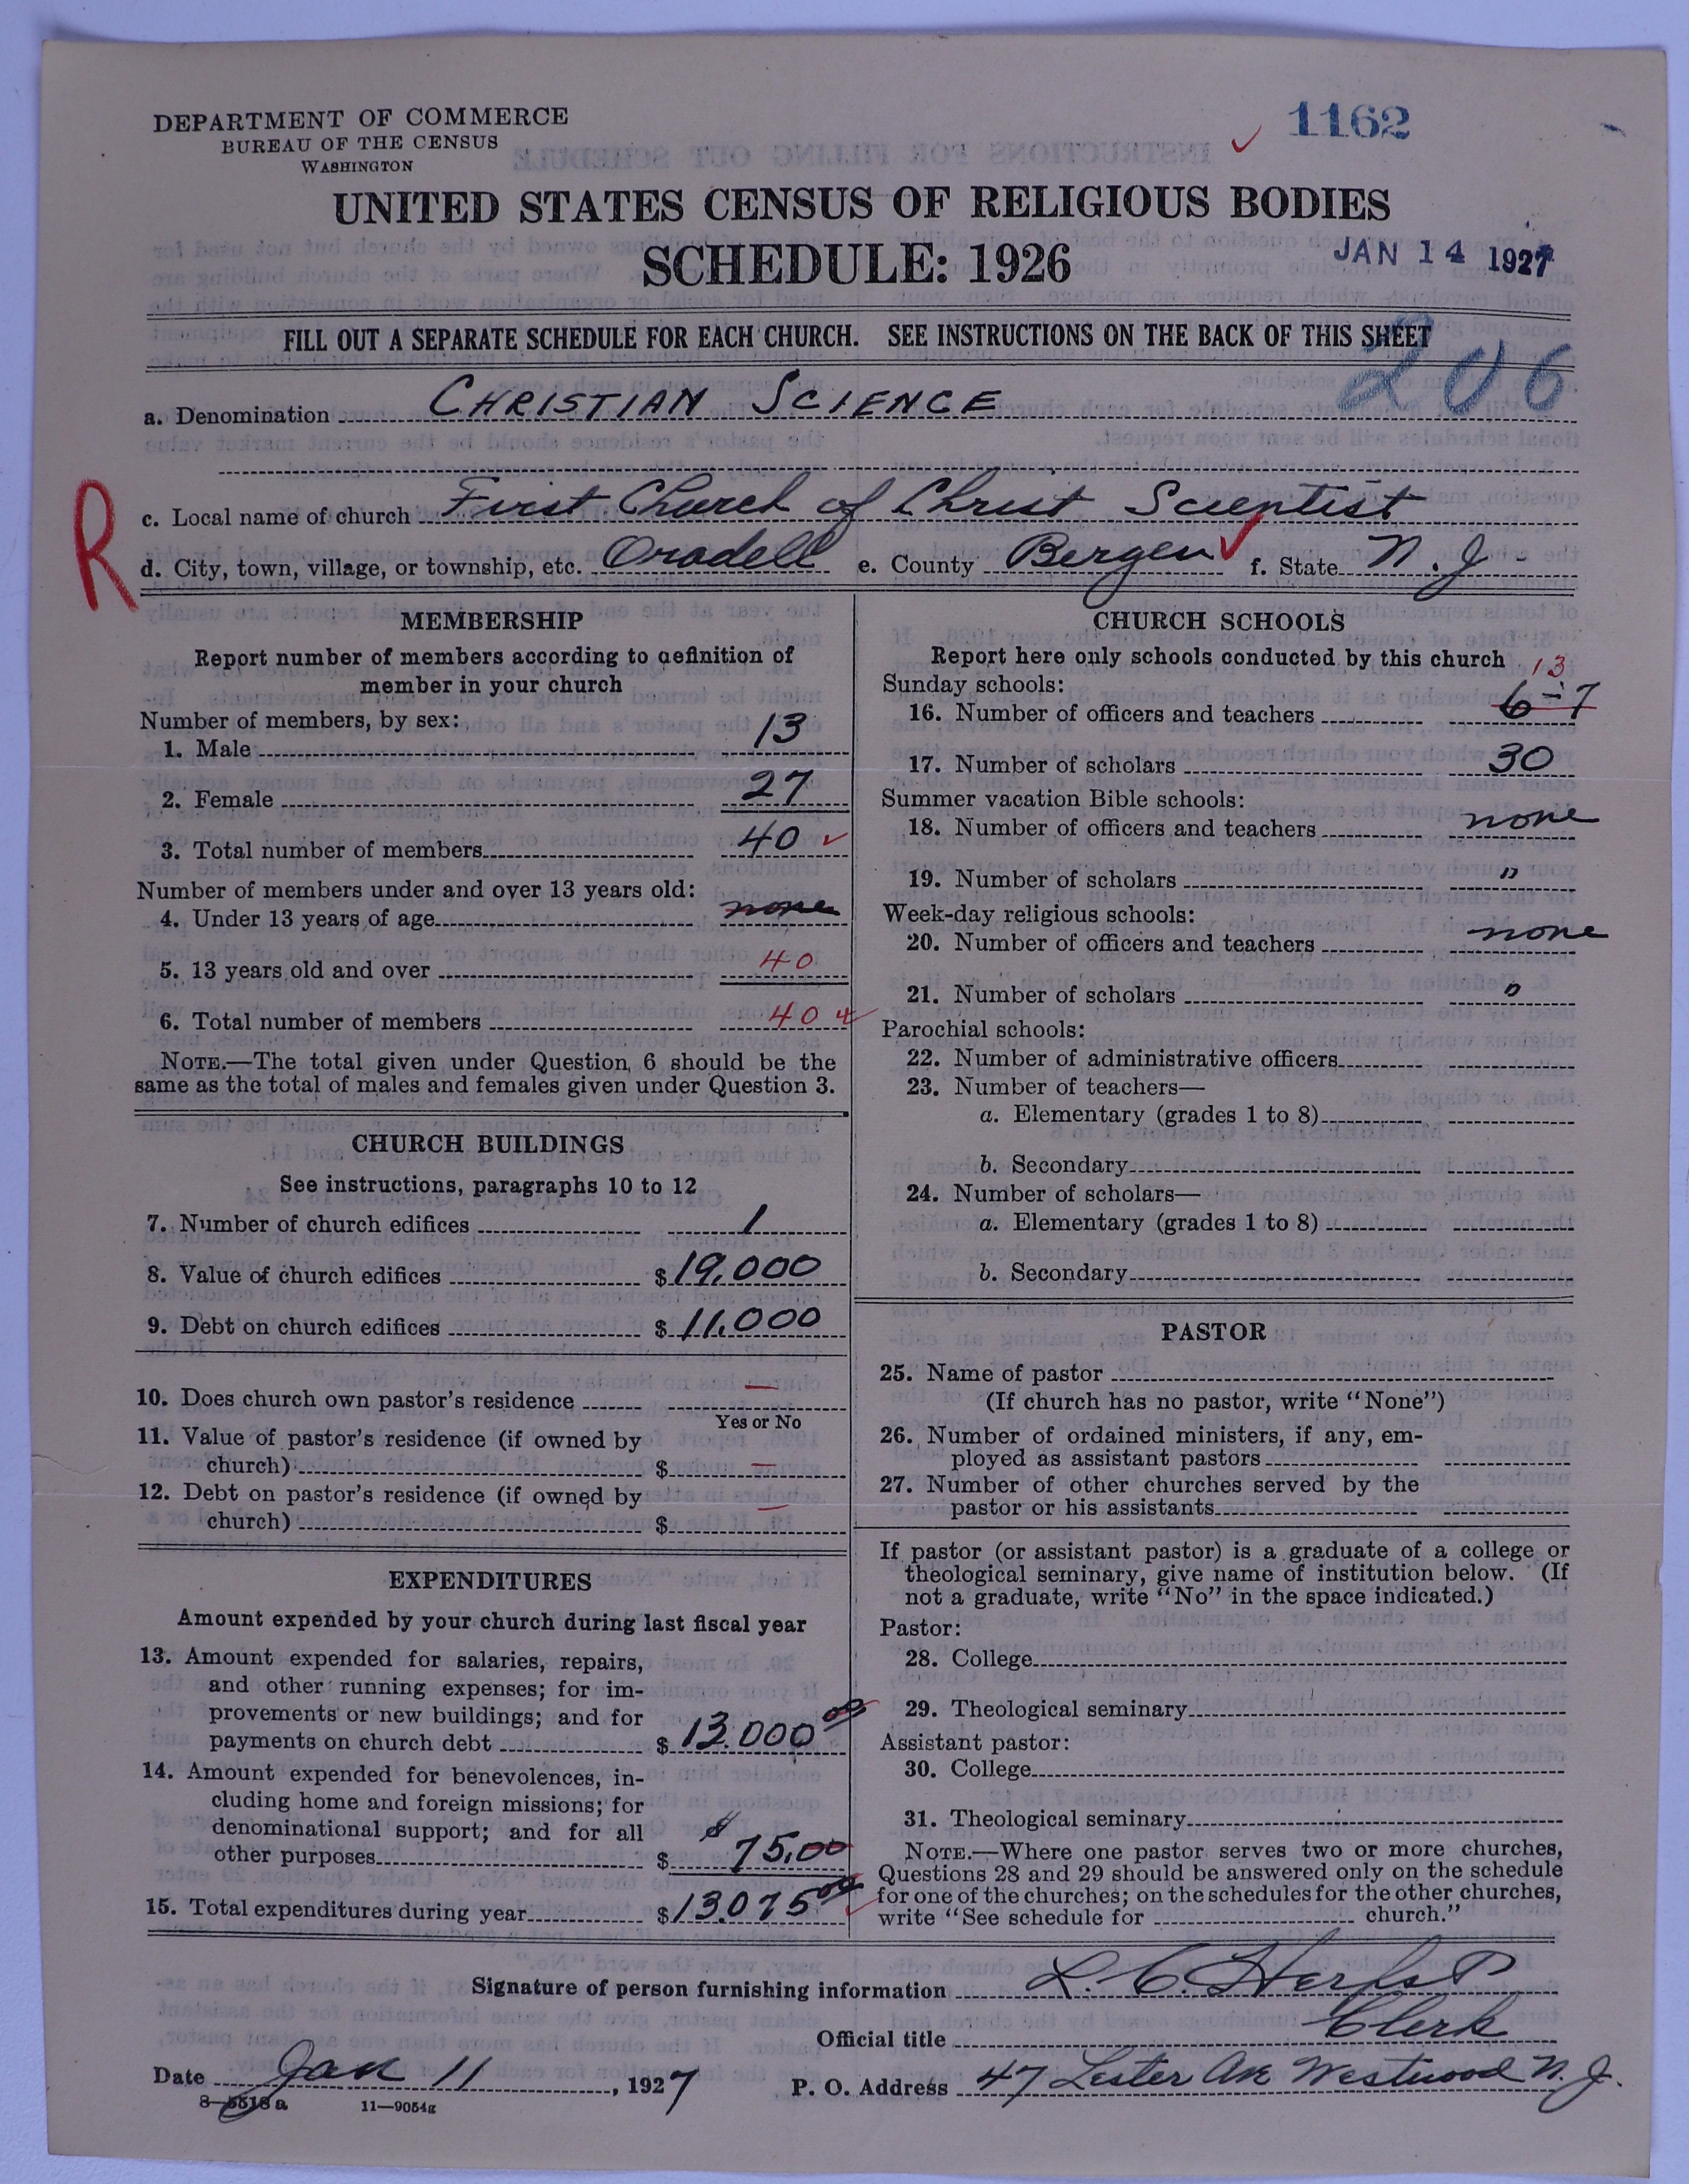 DEPARTMENT OF COMMERCE
BUREAU OF THE CENSUS
WASHINGTON
1162
UNITED STATES CENSUS OF RELIGIOUS BODIES
SCHEDULE: 1926
JAN 14 1927
FILL OUT A SEPARATE SCHEDULE FOR EACH CHURCH. SEE INSTRUCTIONS ON THE BACK OF THIS SHEET
206
a. Denomination CHRISTIAN SCIENCE
R
c. Local name of church First Church of Christ Scientist
d. City, town, village, or township, etc. Oradell e. County Bergen f. State N.J.
MEMBERSHIP
Report number of members according to definition of
member in your church
Number of members, by sex:
1. Male 13
2. Female 27
3. Total number of members 40
Number of members under and over 13 years old:
4. Under 13 years of age none
5. 13 years old and over 40
6. Total number of members 40
NOTE.—The total given under Question 6 should be the
same as the total of males and females given under Question 3.
CHURCH BUILDINGS
See instructions, paragraphs 10 to 12
7. Number of church edifices 1
8. Value of church edifices $19,000
9. Debt on church edifices $11,000
10. Does church own pastor's residence —
Yes or No
11. Value of pastor's residence (if owned by
church) $ —
12. Debt on pastor's residence (if owned by
church) $ —
EXPENDITURES
Amount expended by your church during last fiscal year
13. Amount expended for salaries, repairs,
and other running expenses; for im-
provements or new buildings; and for
payments on church debt $13.000 00
14. Amount expended for benevolences, in-
cluding home and foreign missions; for
denominational support; and for all
other purposes $ $75.00
15. Total expenditures during year $13.075 00
CHURCH SCHOOLS
Report here only schools conducted by this church
Sunday schools: 13
16. Number of officers and teachers 6-7
17. Number of scholars 30
Summer vacation Bible schools:
18. Number of officers and teachers none
19. Number of scholars "
Week-day religious schools:
20. Number of officers and teachers none
21. Number of scholars "
Parochial schools:
22. Number of administrative officers
23. Number of teachers—
a. Elementary (grades 1 to 8)
b. Secondary
24. Number of scholars—
a. Elementary (grades 1 to 8)
b. Secondary
PASTOR
25. Name of pastor
(If church has no pastor, write "None")
26. Number of ordained ministers, if any, em-
ployed as assistant pastors
27. Number of other churches served by the
pastor or his assistants
If pastor (or assistant pastor) is a graduate of a college or
theological seminary, give name of institution below. (If
not a graduate, write "No" in the space indicated.)
Pastor:
28. College
29. Theological seminary
Assistant pastor:
30. College
31. Theological seminary
NOTE.—Where one pastor serves two or more churches,
Questions 28 and 29 should be answered only on the schedule
for one of the churches; on the schedules for the other churches,
write "See schedule for church."
Signature of person furnishing information L. C. Herbst
Official title Clerk
Date Jan 11, 1927 P. O. Address 47 Lester Ave Westwood N.J.
8—5518a 11—9054g